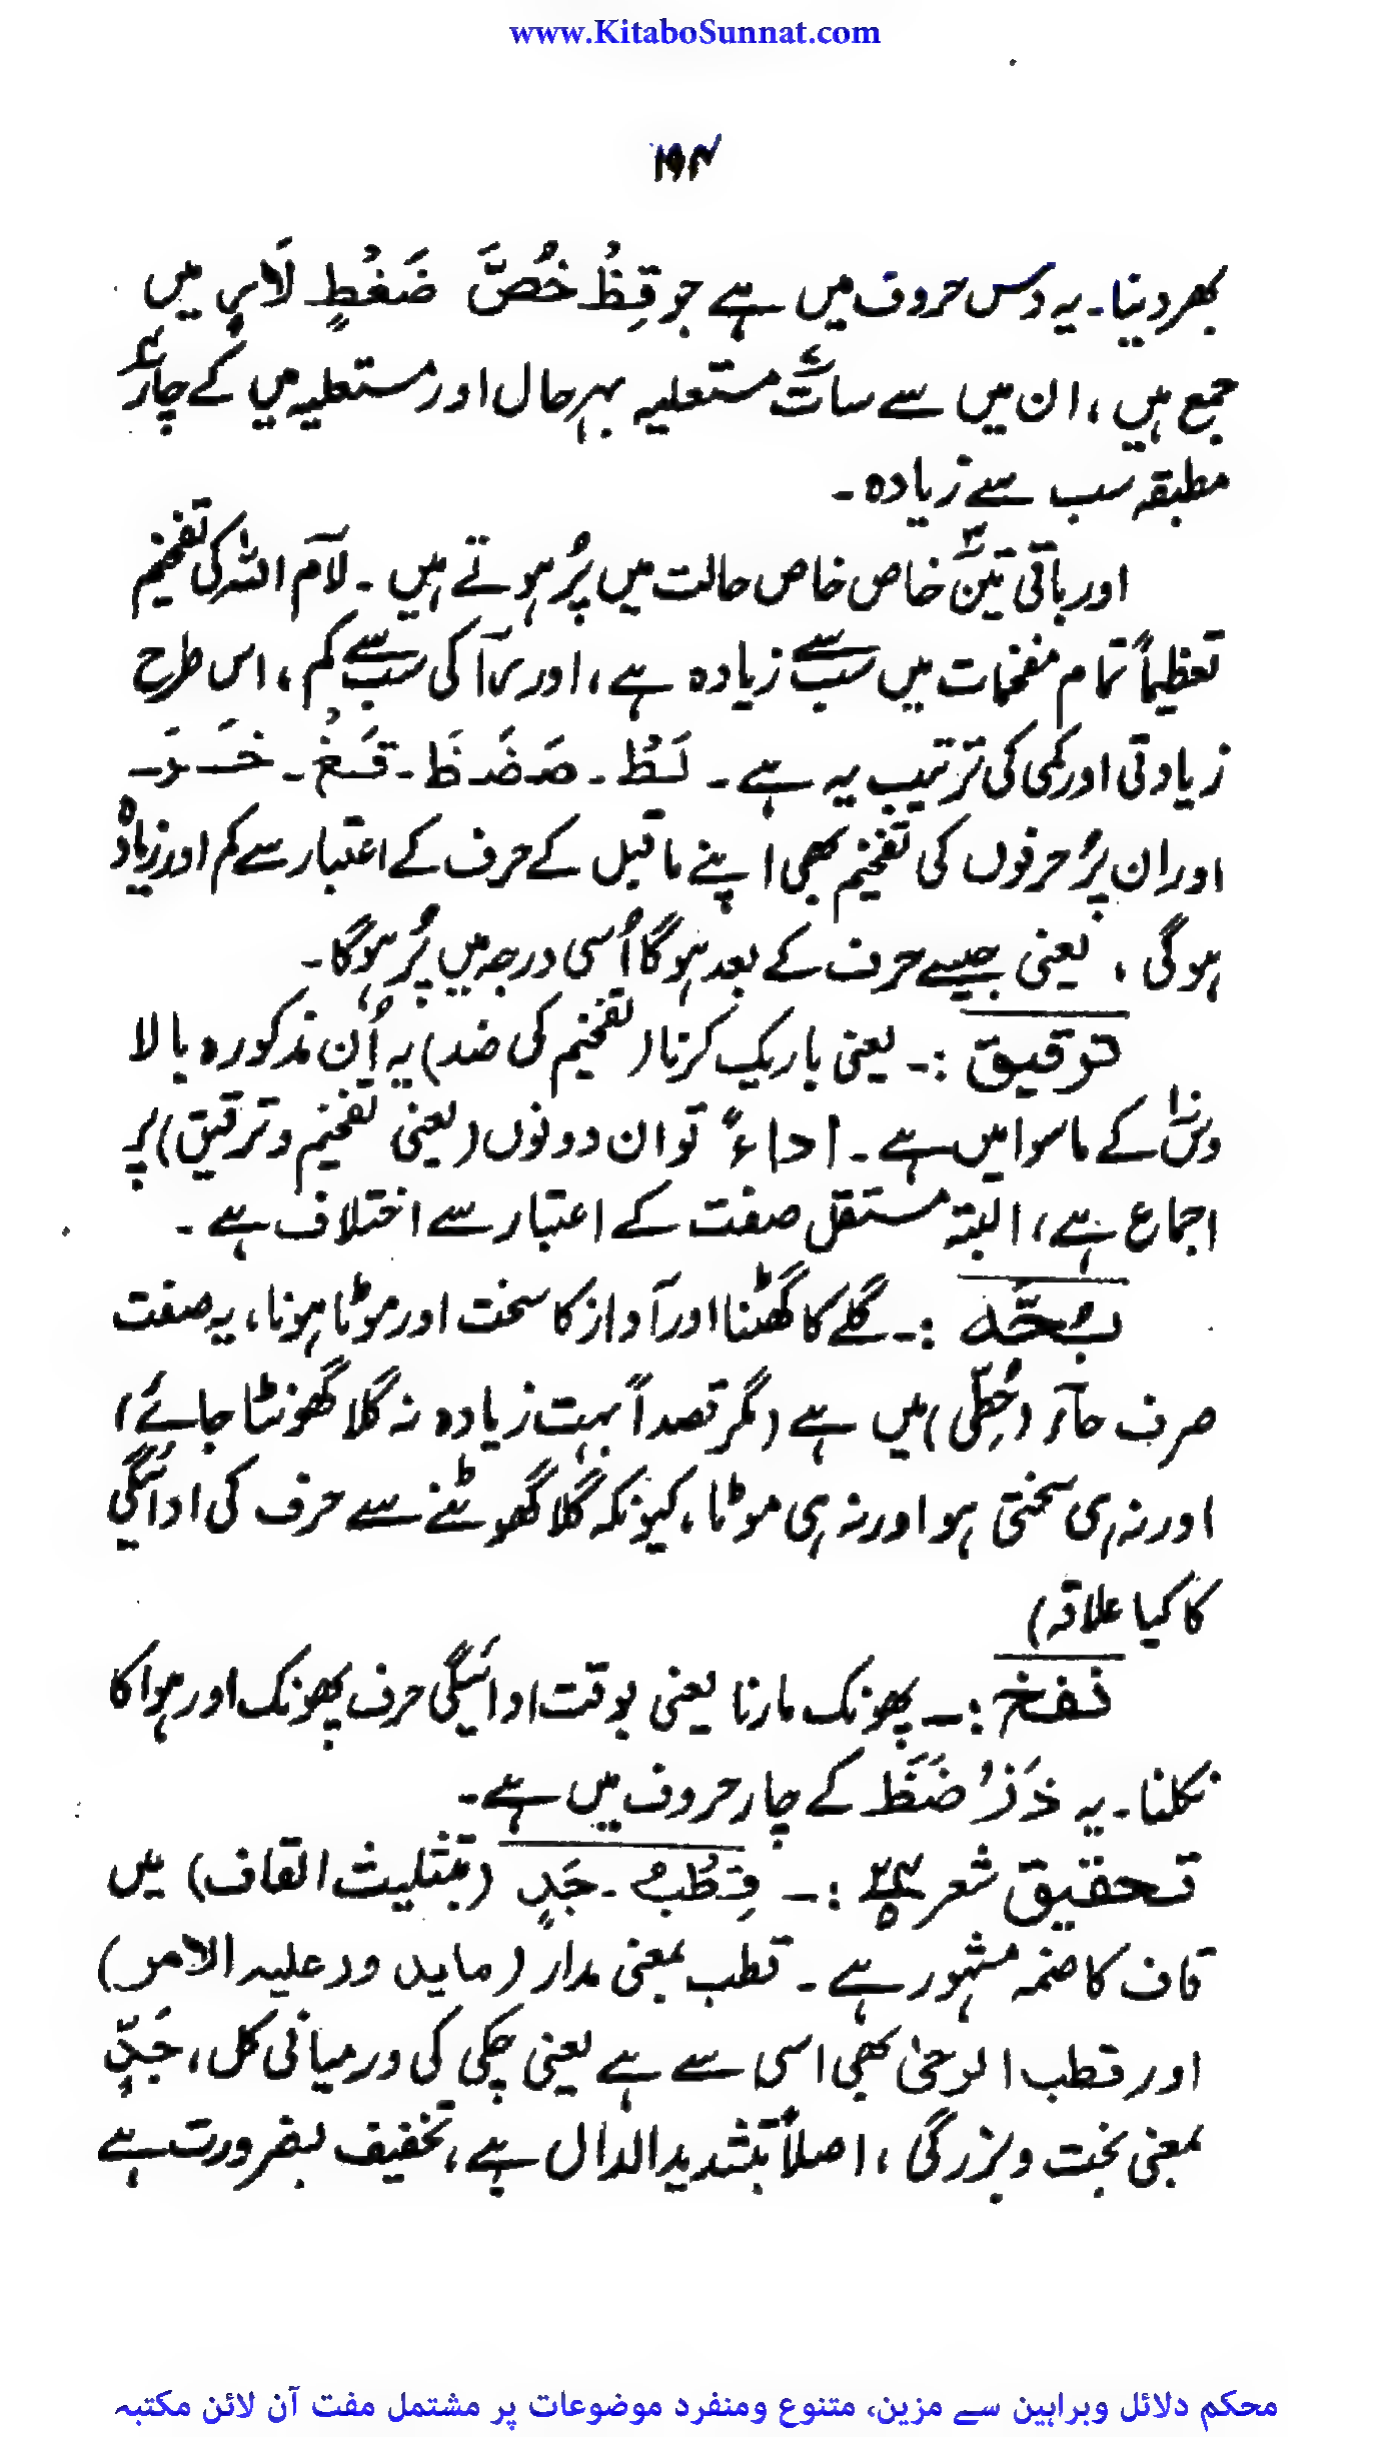 www.KitaboSunnat.com
۱۹۴
بھر دینا۔ یہ دس حروف میں ہے جو قِظُ خُصَّ ضَغْطٍ لَارٍ میں
جمع ہیں، ان میں سے سات مستعلیہ بہرحال اور مستعلیہ میں کے چار
مطبقہ سب سے زیادہ۔
اور باقی تین خاص خاص حالت میں پُر ہوتے ہیں۔ لآم اللہ کی تفخیم
تعظیماً تمام مفخمات میں سب سے زیادہ ہے، اور رآ کی سب سے کم، اس طرح
زیادتی اور کمی کی ترتیب یہ ہے۔ لَطُ۔ صَضَظَ۔ قَغُ۔ خَرَ۔
اور ان پُر حرفوں کی تفخیم بھی اپنے ماقبل کے حرف کے اعتبار سے کم اور زیادہ
ہوگی، یعنی جیسے حرف کے بعد ہوگا اُسی درجہ میں پُر ہوگا۔
ترقیق :۔ یعنی باریک کرنا (تفخیم کی ضد) یہ اُن مذکورہ بالا
دس کے ماسوا میں ہے۔ اداءً تو ان دونوں (یعنی تفخیم و ترقیق) پر
اجماع ہے، البتہ مستقل صفت کے اعتبار سے اختلاف ہے۔
بُحَّہ :۔ گلے کا گھٹنا اور آواز کا سخت اور موٹا ہونا، یہ صفت
صرف حآء (حُطِّی) میں ہے (مگر قصداً بہت زیادہ نہ گلا گھونٹا جائے،
اور نہ ہی سختی ہو اور نہ ہی موٹا، کیونکہ گلا گھوٹنے سے حرف کی ادائیگی
کا کیا علاقہ)
نفخ :۔ پھونک مارنا یعنی بوقت ادائیگی حرف پھونک اور ہوا کا
نکلنا۔ یہ ذَزُ ضَظَ کے چار حروف میں ہے۔
تحقیق شعر :۔ قِطُبُ۔ جَدٍ (بتثلیث القاف) میں
قاف کا ضمہ مشہور ہے۔ قطب بمعنی مدار (مایدور علیہ الامر)
اور قطب الرحیٰ بھی اسی سے ہے یعنی چکی کی درمیانی کل، جَدٍّ
بمعنی بخت و بزرگی، اصلاً بتشدید الدال ہے، تخفیف بضرورت ہے
محکم دلائل وبراہین سے مزین، متنوع ومنفرد موضوعات پر مشتمل مفت آن لائن مکتبہ